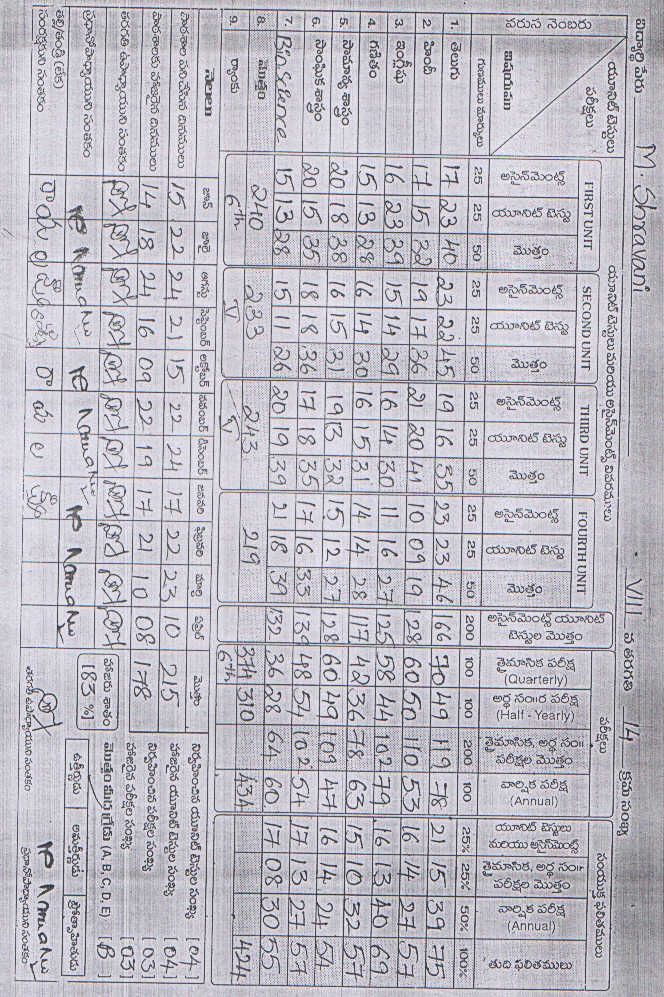 విద్యార్థి పేరు M. Shravani VIII వ తరగతి 14 క్రమ సంఖ్య
యూనిట్ టెస్టులు మరియు అసైన్‌మెంట్స్ వివరములు
వరుస నెంబరు యూనిట్ టెస్టులు పరీక్షలు FIRST UNIT SECOND UNIT THIRD UNIT FOURTH UNIT అసైన్‌మెంట్స్ యూనిట్ టెస్టుల మొత్తం పరీక్షలు సంయుక్త ఫలితములు
విషయము అసైన్‌మెంట్స్ యూనిట్ టెస్టు మొత్తం అసైన్‌మెంట్స్ యూనిట్ టెస్టు మొత్తం అసైన్‌మెంట్స్ యూనిట్ టెస్టు మొత్తం అసైన్‌మెంట్స్ యూనిట్ టెస్టు మొత్తం త్రైమాసిక పరీక్ష (Quarterly) అర్థ సం॥ర పరీక్ష (Half - Yearly) త్రైమాసిక, అర్థ సం॥ పరీక్షల మొత్తం వార్షిక పరీక్ష (Annual) యూనిట్ టెస్టులు మరియు అసైన్‌మెంట్స్ త్రైమాసిక, అర్థ సం॥ర పరీక్షల మొత్తం వార్షిక పరీక్ష (Annual) తుది ఫలితములు
గుణములు మార్కులు 25 25 50 25 25 50 25 25 50 25 25 50 200 100 100 200 100 25% 25% 50% 100%
1. తెలుగు 17 23 40 23 22 45 19 16 35 23 23 46 166 70 49 119 78 21 15 39 75
2. హిందీ 17 15 32 19 17 36 21 20 41 10 09 19 128 60 50 110 53 16 14 27 57
3. ఇంగ్లీషు 16 23 39 15 14 29 16 14 30 11 16 27 125 58 44 102 79 16 13 40 69
4. గణితం 15 13 28 16 14 30 16 15 31 14 14 28 117 42 36 78 63 15 10 32 57
5. సామాన్య శాస్త్రం 20 18 38 16 15 31 19 13 32 15 12 27 128 60 49 109 47 16 14 24 54
6. సాంఘిక శాస్త్రం 20 15 35 18 18 36 17 18 35 17 16 33 139 48 54 102 54 17 13 27 57
7. 15 13 28 15 11 26 20 19 39 21 18 39 132 36 28 64 60 17 08 30 55
8. మొత్తం 240 233 243 219 374 310 434 424
9. ర్యాంకు 6th V V 6th
నెలలు జూన్ జులై ఆగస్టు సెప్టెంబర్ అక్టోబర్ నవంబర్ డిసెంబర్ జనవరి ఫిబ్రవరి మార్చి ఏప్రిల్ మొత్తం
పాఠశాల పనిచేసిన దినములు 15 22 24 21 15 22 24 17 22 23 10 215
పాఠశాలకు హాజరైన దినములు 14 18 24 16 09 22 19 17 21 10 08 178
తరగతి ఉపాధ్యాయుని సంతకం
ప్రధానోపాధ్యాయుని సంతకం
తల్లి/తండ్రి (లేక) సంరక్షకుని సంతకం
హాజరు శాతం [83 %]
నిర్వహించిన యూనిట్ టెస్టుల సంఖ్య [04]
హాజరైన యూనిట్ టెస్టుల సంఖ్య [04]
నిర్వహించిన పరీక్షల సంఖ్య [03]
హాజరైన పరీక్షల సంఖ్య [03]
మొత్తం మీద గ్రేడు (A, B, C, D, E) [B]
ఉత్తీర్ణుడు అనుత్తీర్ణుడు ప్రోత్సాహితుడు
తరగతి ఉపాధ్యాయుని సంతకం ప్రధానోపాధ్యాయుని సంతకం